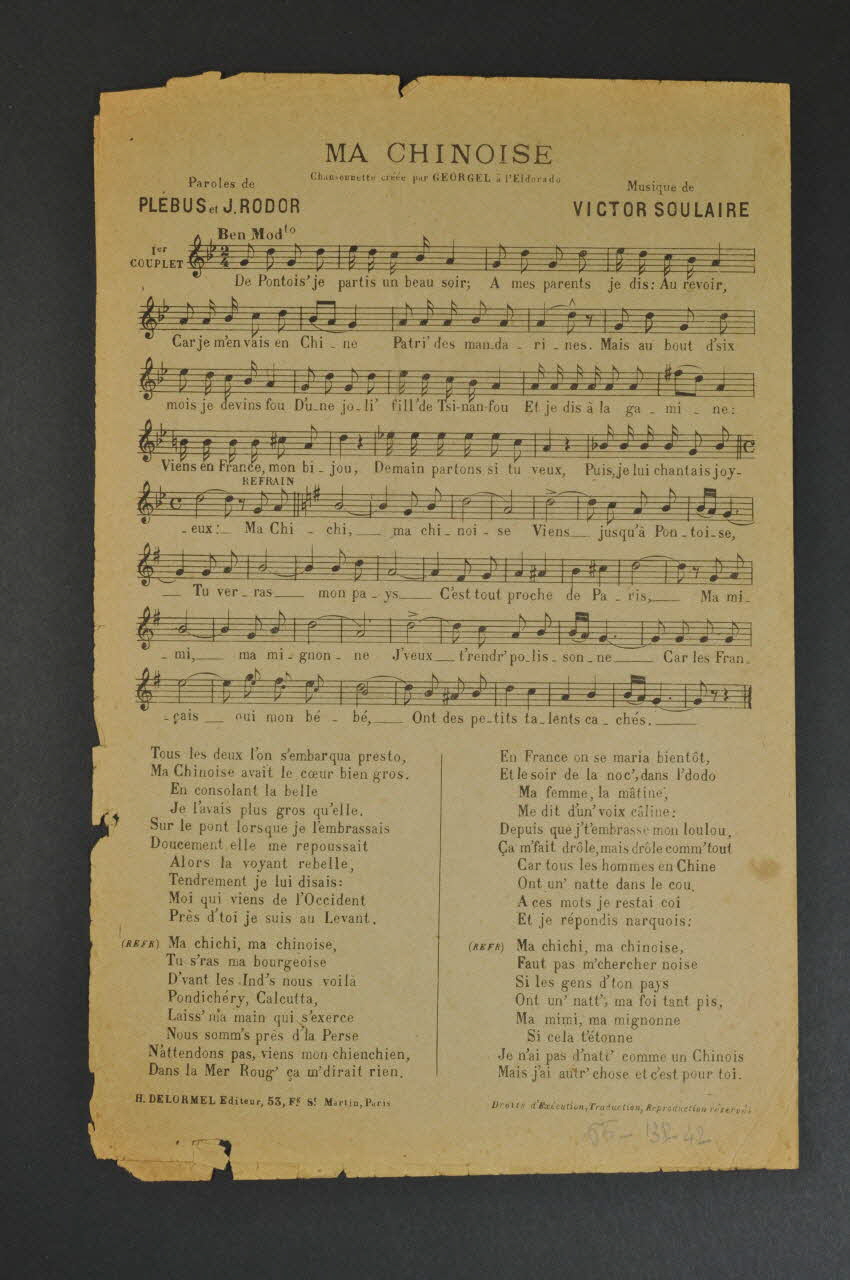 MA CHINOISE
Chansonnette créée par GEORGEL à l'Eldorado
Paroles de
PLÉBUS et J. RODOR
Musique de
VICTOR SOULAIRE
Ben Mod.to
1er COUPLET
De Pontois' je partis un beau soir; A mes parents je dis: Au revoir,
Car je m'en vais en Chi - ne Patri' des man-da - ri - nes. Mais au bout d'six
mois je devins fou D'u-ne jo-li' fill' de Tsi-nan-fou Et je dis à la ga - mi - ne:
Viens en France, mon bi - jou, Demain partons si tu veux, Puis, je lui chantais joy-
REFRAIN
- eux: Ma Chi - chi, ma chi-noi - se Viens jusqu'à Pon-toi-se,
Tu ver-ras mon pa-ys C'est tout proche de Pa - ris, Ma mi-
- mi, ma mi-gnon-ne J'veux t'rendr' po-lis-son-ne Car les Fran-
- çais oui mon bé - bé, Ont des pe-tits ta-lents ca-chés.
Tous les deux l'on s'embarqua presto,
Ma Chinoise avait le cœur bien gros.
En consolant la belle
Je l'avais plus gros qu'elle.
Sur le pont lorsque je l'embrassais
Doucement elle me repoussait
Alors la voyant rebelle,
Tendrement je lui disais:
Moi qui viens de l'Occident
Près d'toi je suis au Levant.
(REFR) Ma chichi, ma chinoise,
Tu s'ras ma bourgeoise
D'vant les Ind's nous voilà
Pondichéry, Calcutta,
Laiss' ma main qui s'exerce
Nous somm's près d'la Perse
N'attendons pas, viens mon chienchien,
Dans la Mer Roug' ça m'dirait rien.
En France on se maria bientôt,
Et le soir de la noc', dans l'dodo
Ma femme, la mâtine,
Me dit d'un' voix câline:
Depuis que j't'embrasse mon loulou,
Ça m'fait drôle, mais drôle comm' tout
Car tous les hommes en Chine
Ont un' natte dans le cou.
A ces mots je restai coi
Et je répondis narquois:
(REFR) Ma chichi, ma chinoise,
Faut pas m'chercher noise
Si les gens d'ton pays
Ont un' natt', ma foi tant pis,
Ma mimi, ma mignonne
Si cela t'étonne
Je n'ai pas d'natt' comme un Chinois
Mais j'ai autr' chose et c'est pour toi.
H. DELORMEL Editeur, 53, Fg St Martin, Paris
Droits d'Exécution, Traduction, Reproduction réservés